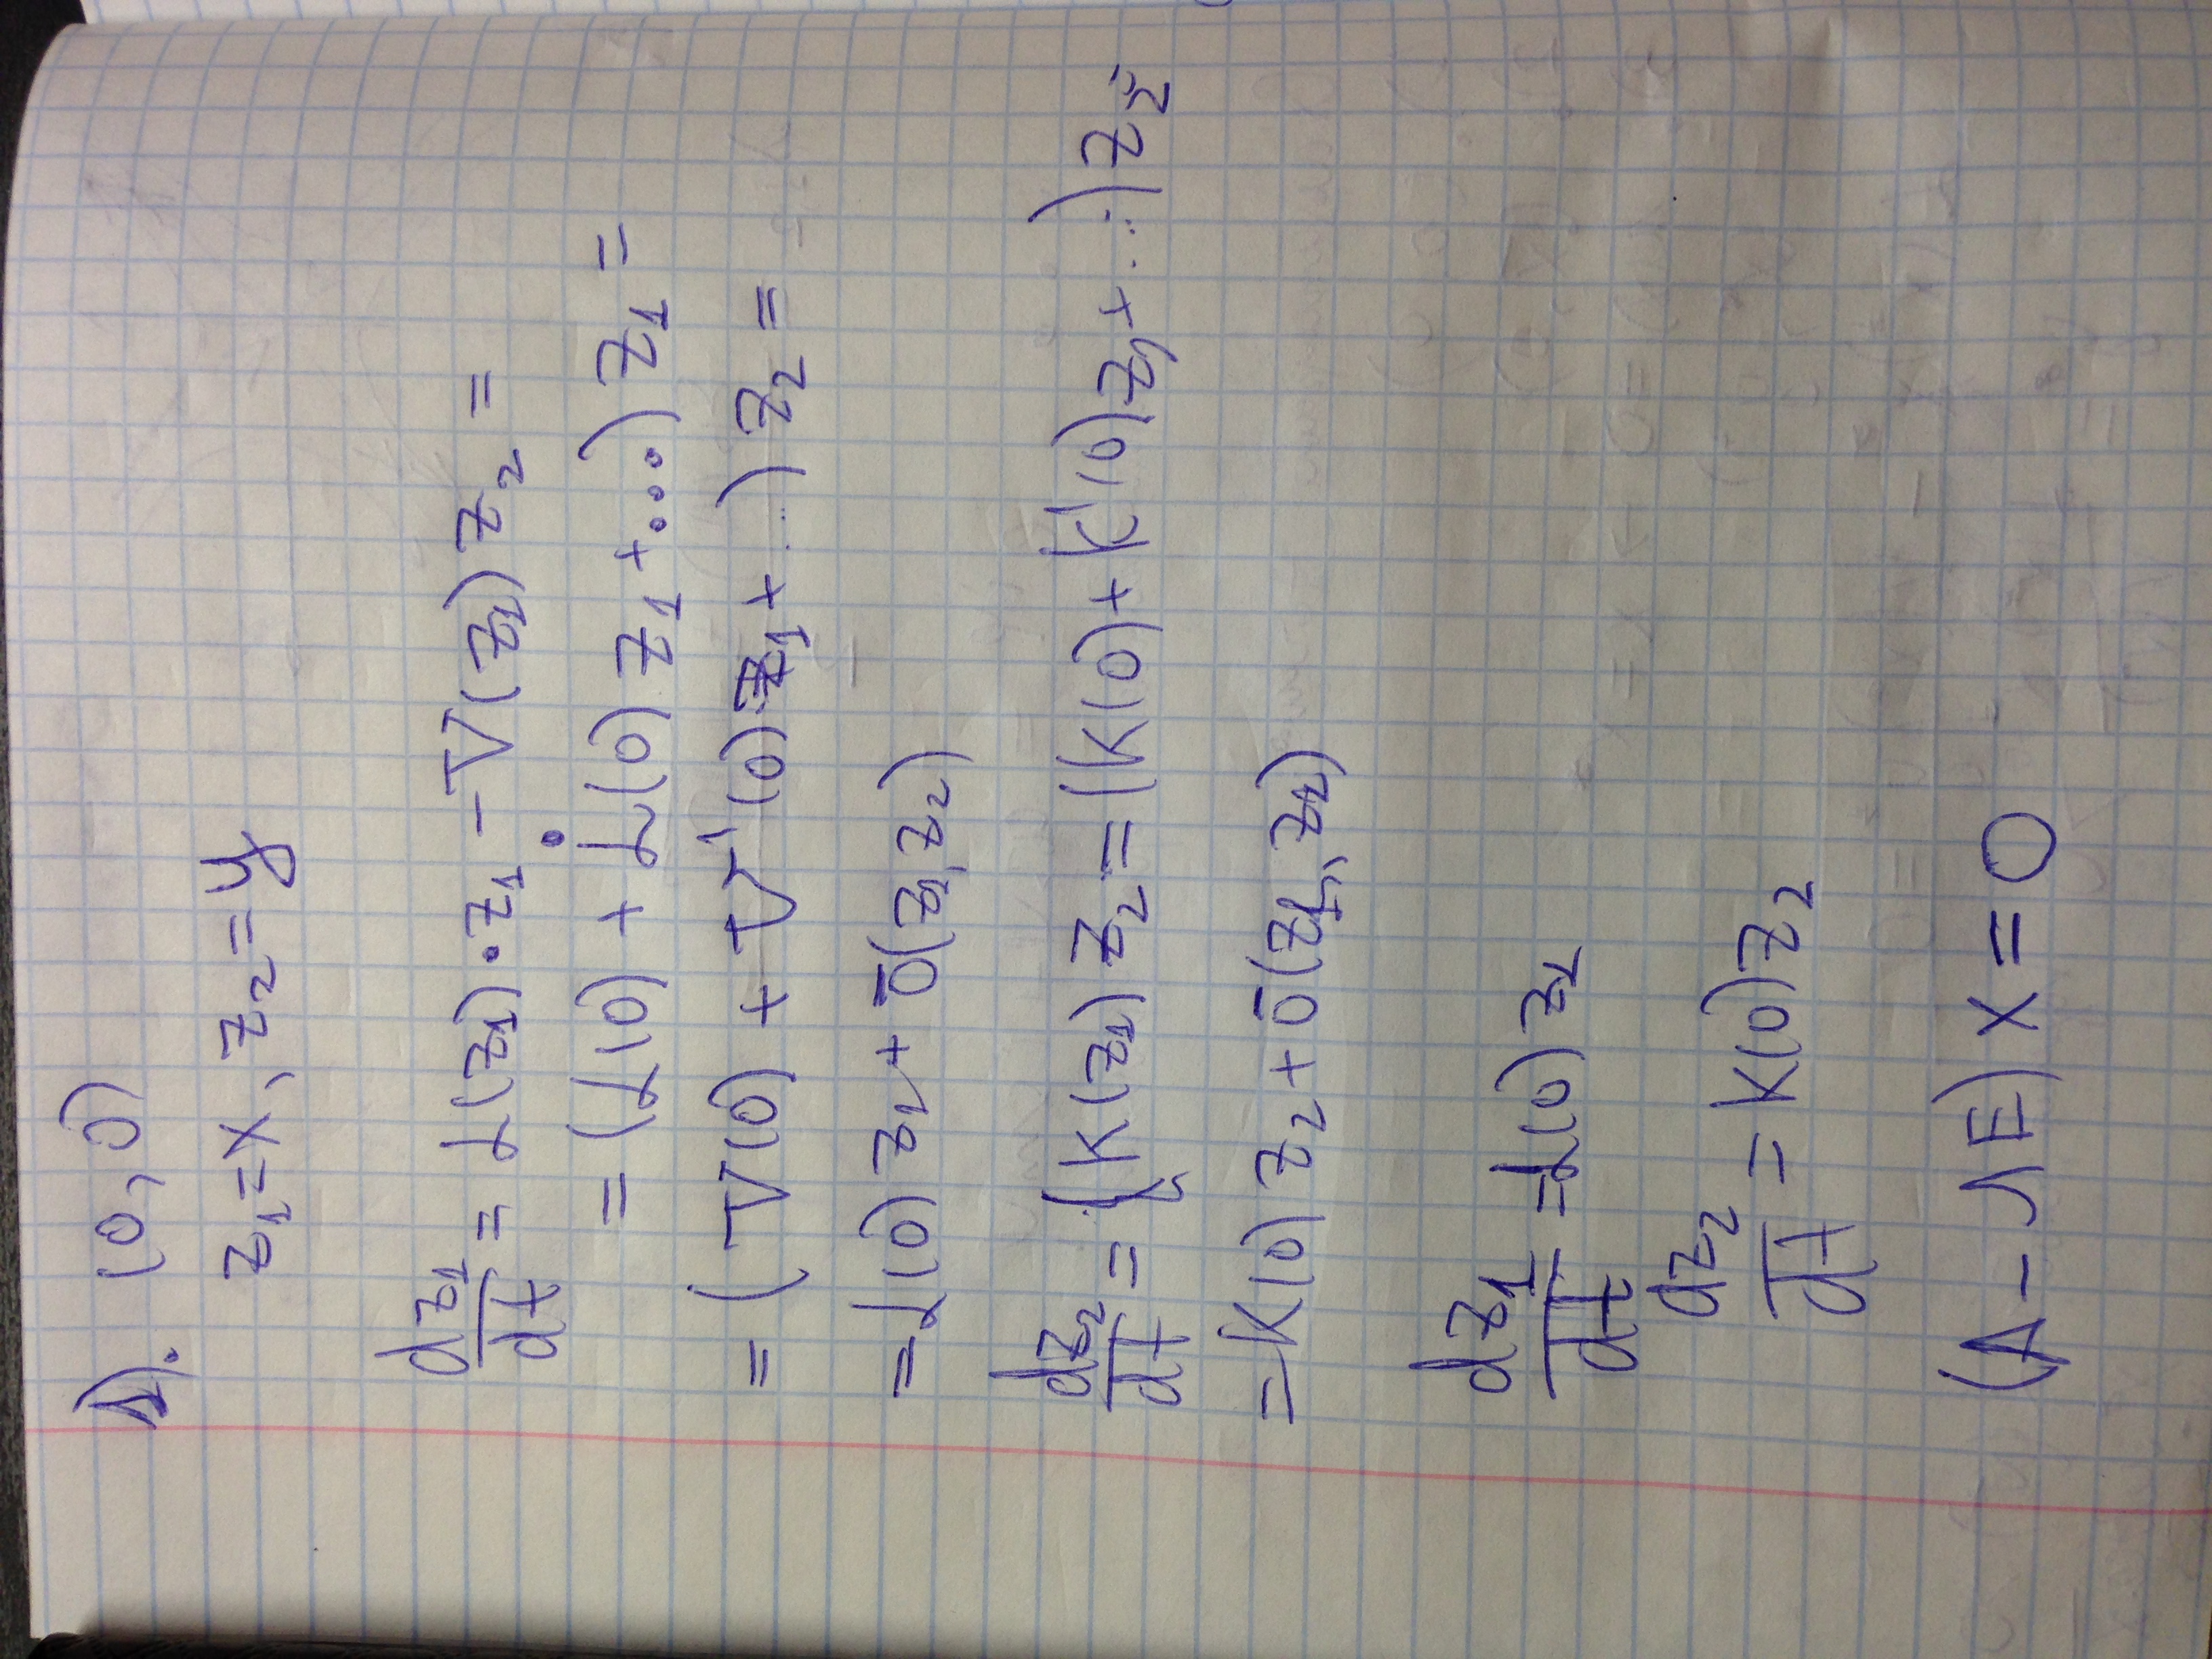 1). (0,0)
z₁=x, z₂=y
dz₁/dt = α(z₁)·z₁ - V(z₁)z₂ =
= (α(0) + α̇(0)z₁+...)z₁ =
= (V(0) + V'(0)z₁+...)z₂ =
= α(0)z₂ + ō(z₁,z₂)
dz₂/dt = {K(z₁)z₂ = (K(0)+K'(0)z₁+...)z₂=
= K(0)z₂+ō(z₁,z₂)
dz₁/dt = α(0)z₁
dz₂/dt = K(0)z₂
(A-λE)x=0